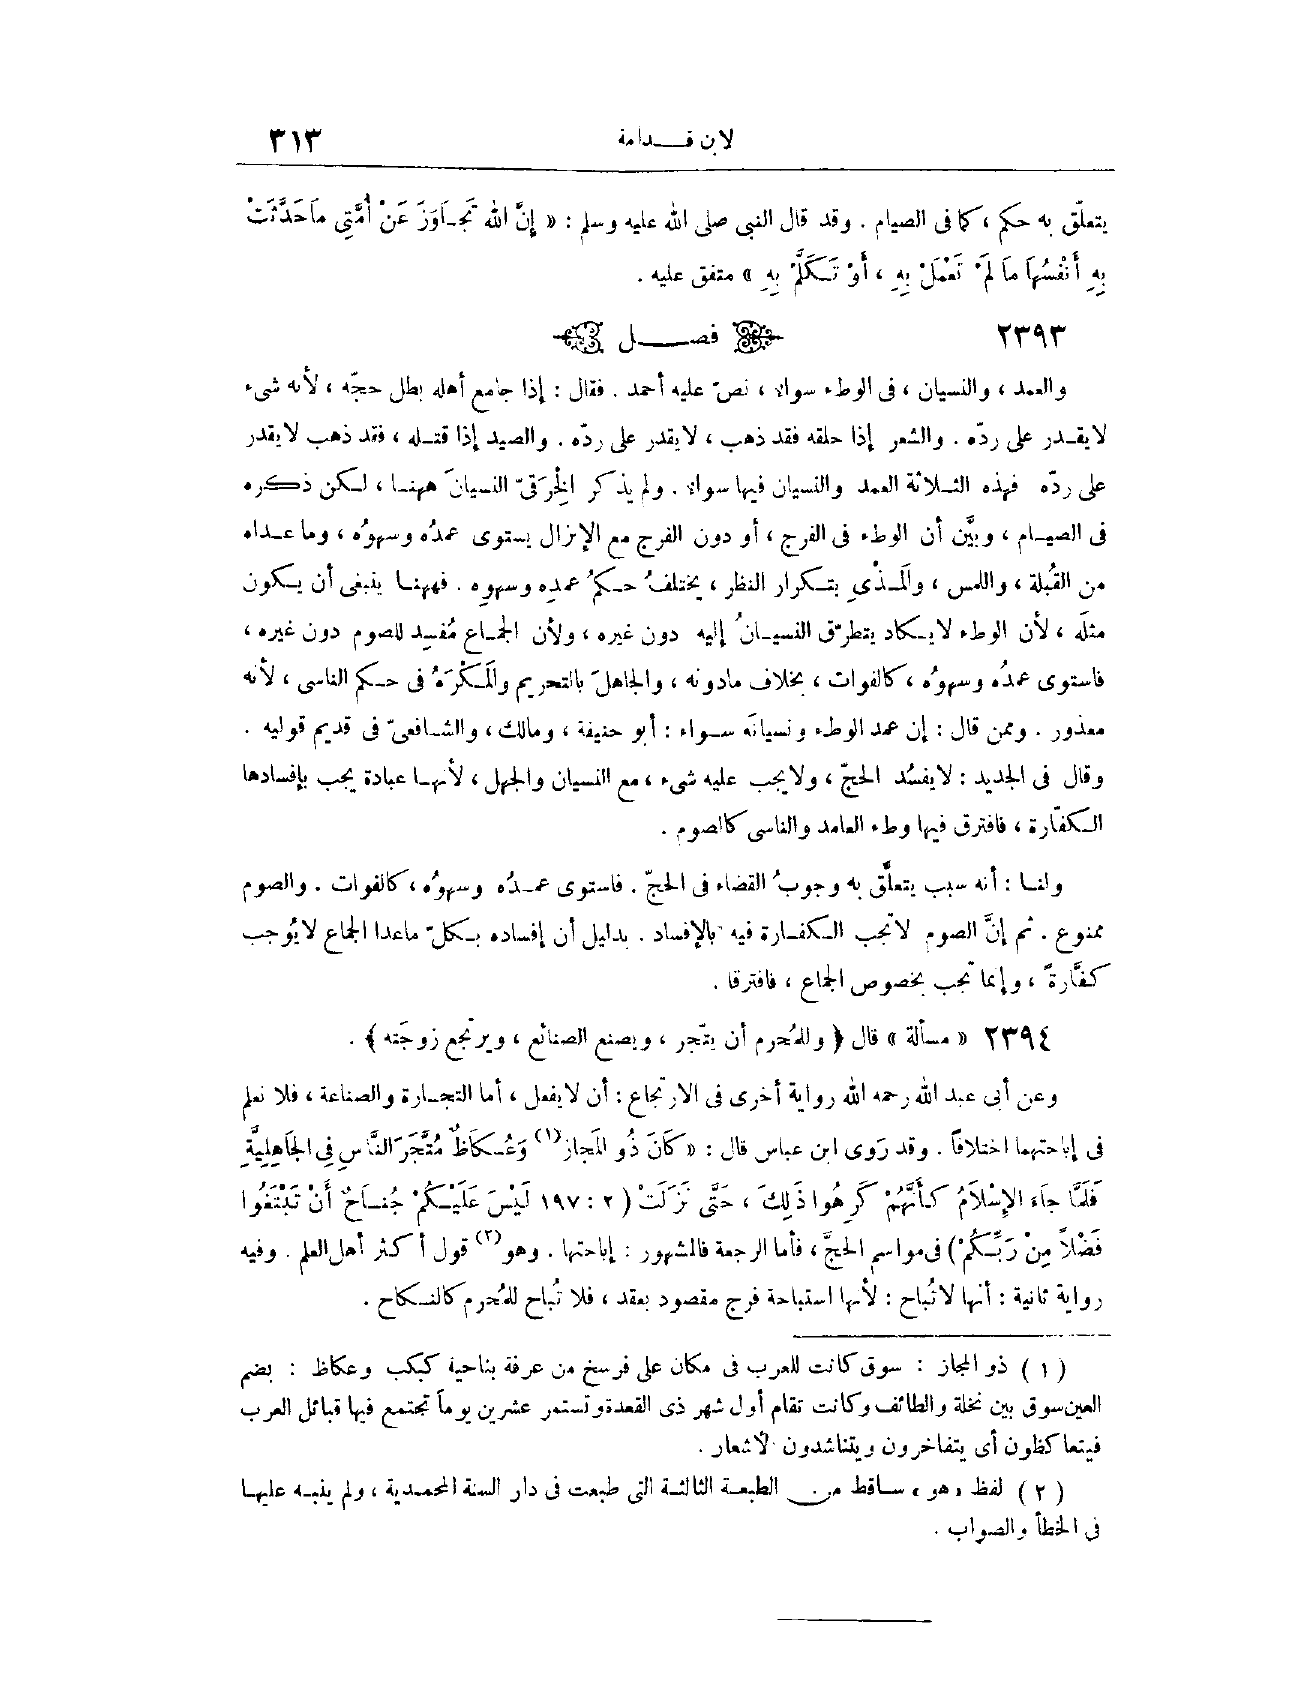 لابن قـدامة ٣١٣
يتعلّق به حكم ، كما فى الصيام . وقد قال النبى صلى الله عليه وسلم : « إِنَّ اللهَ تَجـَاوَزَ عَنْ أُمَّتِى مَا حَدَّثَتْ
بِهِ أَنْفُسُهَا مَا لَمْ تَعْمَلْ بِهِ ، أَوْ تَـكَلَّمْ بِهِ » متفق عليه .
٢٣٩٣ فصـــل
والعمد ، والنسيان ، فى الوطء سواء ، نصّ عليه أحمد . فقال : إذا جامع أهله بطل حجّه ، لأنه شىء
لا يقـدر على ردّه . والشعر إذا حلقه فقد ذهب ، لا يقدر على ردّه . والصيد إذا قتـله ، فقد ذهب لا يقدر
على ردّه فهذه الثـلاثة العمد والنسيان فيها سواء . ولم يذكر الخِرَقىّ النسيانَ ههنـا ، لـكن ذكره
فى الصيـام ، وبيَّن أن الوطء فى الفرج ، أو دون الفرج مع الإنزال يستوى عمدُه وسهوُه ، وما عـداه
من القُبلة ، واللمس ، والَمـذْىِ بتـكرار النظر ، يختلفُ حـكمُ عمدِه وسهوِه . فههنـا ينبغى أن يـكون
مثلَه ، لأن الوطء لا يـكاد يتطرّق النسيـانُ إليه دون غيره ، ولأن الجمـاع مُفسِد للصوم دون غيره ،
فاستوى عمدُه وسهوُه ، كالفوات ، بخلاف مادونه ، والجاهلَ بالتحريم والَمـكْرَهُ فى حـكم الناسى ، لأنه
معذور . وممن قال : إن عمد الوطء ونسيانَه سـواء : أبو حنيفة ، ومالك ، والشـافعىّ فى قديم قوليه .
وقال فى الجديد : لا يفسُد الحجّ ، ولا يجب عليه شىء ، مع النسيان والجهل ، لأنهـا عبادة يجب بإفسادها
الـكفّارة ، فافترق فيها وطء العامد والناسى كالصوم .
ولنـا : أنه سبب يتعلّق به وجوبُ القضاء فى الحجّ . فاستوى عمـدُه وسهوُه ، كالفوات . والصوم
ممنوع . ثم إنَّ الصوم لا تجب الـكفـارة فيه بالإفساد . بدليل أن إفساده بـكلّ ماعدا الجماع لا يُوجب
كفَّارةً ، وإنما تجب بخصوص الجماع ، فافترقا .
٢٣٩٤ « مسألة » قال ﴿ وللمُحرم أن يتّجر ، ويصنع الصنائع ، ويرتجع زوجَته ﴾ .
وعن أبى عبد الله رحمه الله رواية أخرى فى الارتجاع : أن لا يفعل ، أما التجـارة والصناعة ، فلا نعلم
فى إباحتهما اختلافاً . وقد رَوى ابن عباس قال : « كَانَ ذُو الَمجاز(١) وَعُـكَاظٌ مُتَّجَرَ النَّاسِ فِى الجَاهِلِيَّةِ
فَلَمَّا جَاءَ الإِسْلَامُ كَـأَنَّهُمْ كَرِهُوا ذَلِكَ ، حَتَّى نَزَلَتْ ( ٢ : ١٩٧ لَيْسَ عَلَيْـكُمْ جُنـَاحٌ أَنْ تَبْتَغُوا
فَضْلاً مِنْ رَبِّـكُمْ ) فى مواسم الحجّ ، فأما الرجعة فالمشهور : إباحتها . وهو(٢) قول أكثر أهل العلم . وفيه
رواية ثانية : أنها لا تُباح : لأنها استباحة فرج مقصود بعقد ، فلا تُباح للمُحرم كالنـكاح .
( ١ ) ذو المجاز : سوق كانت للعرب فى مكان على فرسخ من عرفة بناحية كبكب وعكاظ : بضم
العين سوق بين نخلة والطائف وكانت تقام أول شهر ذى القعدة وتستمر عشرين يوماً تجتمع فيها قبائل العرب
فيتعاكظون أى يتفاخرون ويتناشدون الأشعار .
( ٢ ) لفظ « هو » سـاقط من الطبعـة الثالثـة التى طبعت فى دار السنة المحمـدية ، ولم ينبـه عليهـا
فى الخطأ والصواب .